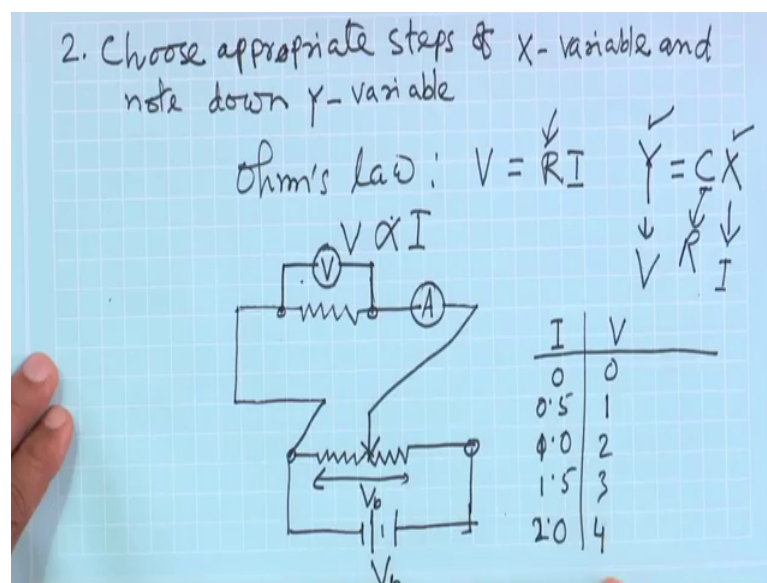 2. Choose appropriate steps of X-variable and
note down Y-variable
Ohm's law: V = RI Y = CX
V R I
V ∝ I
V
A
I V
0 0
0.5 1
1.0 2
1.5 3
2.0 4
Vb
Vb